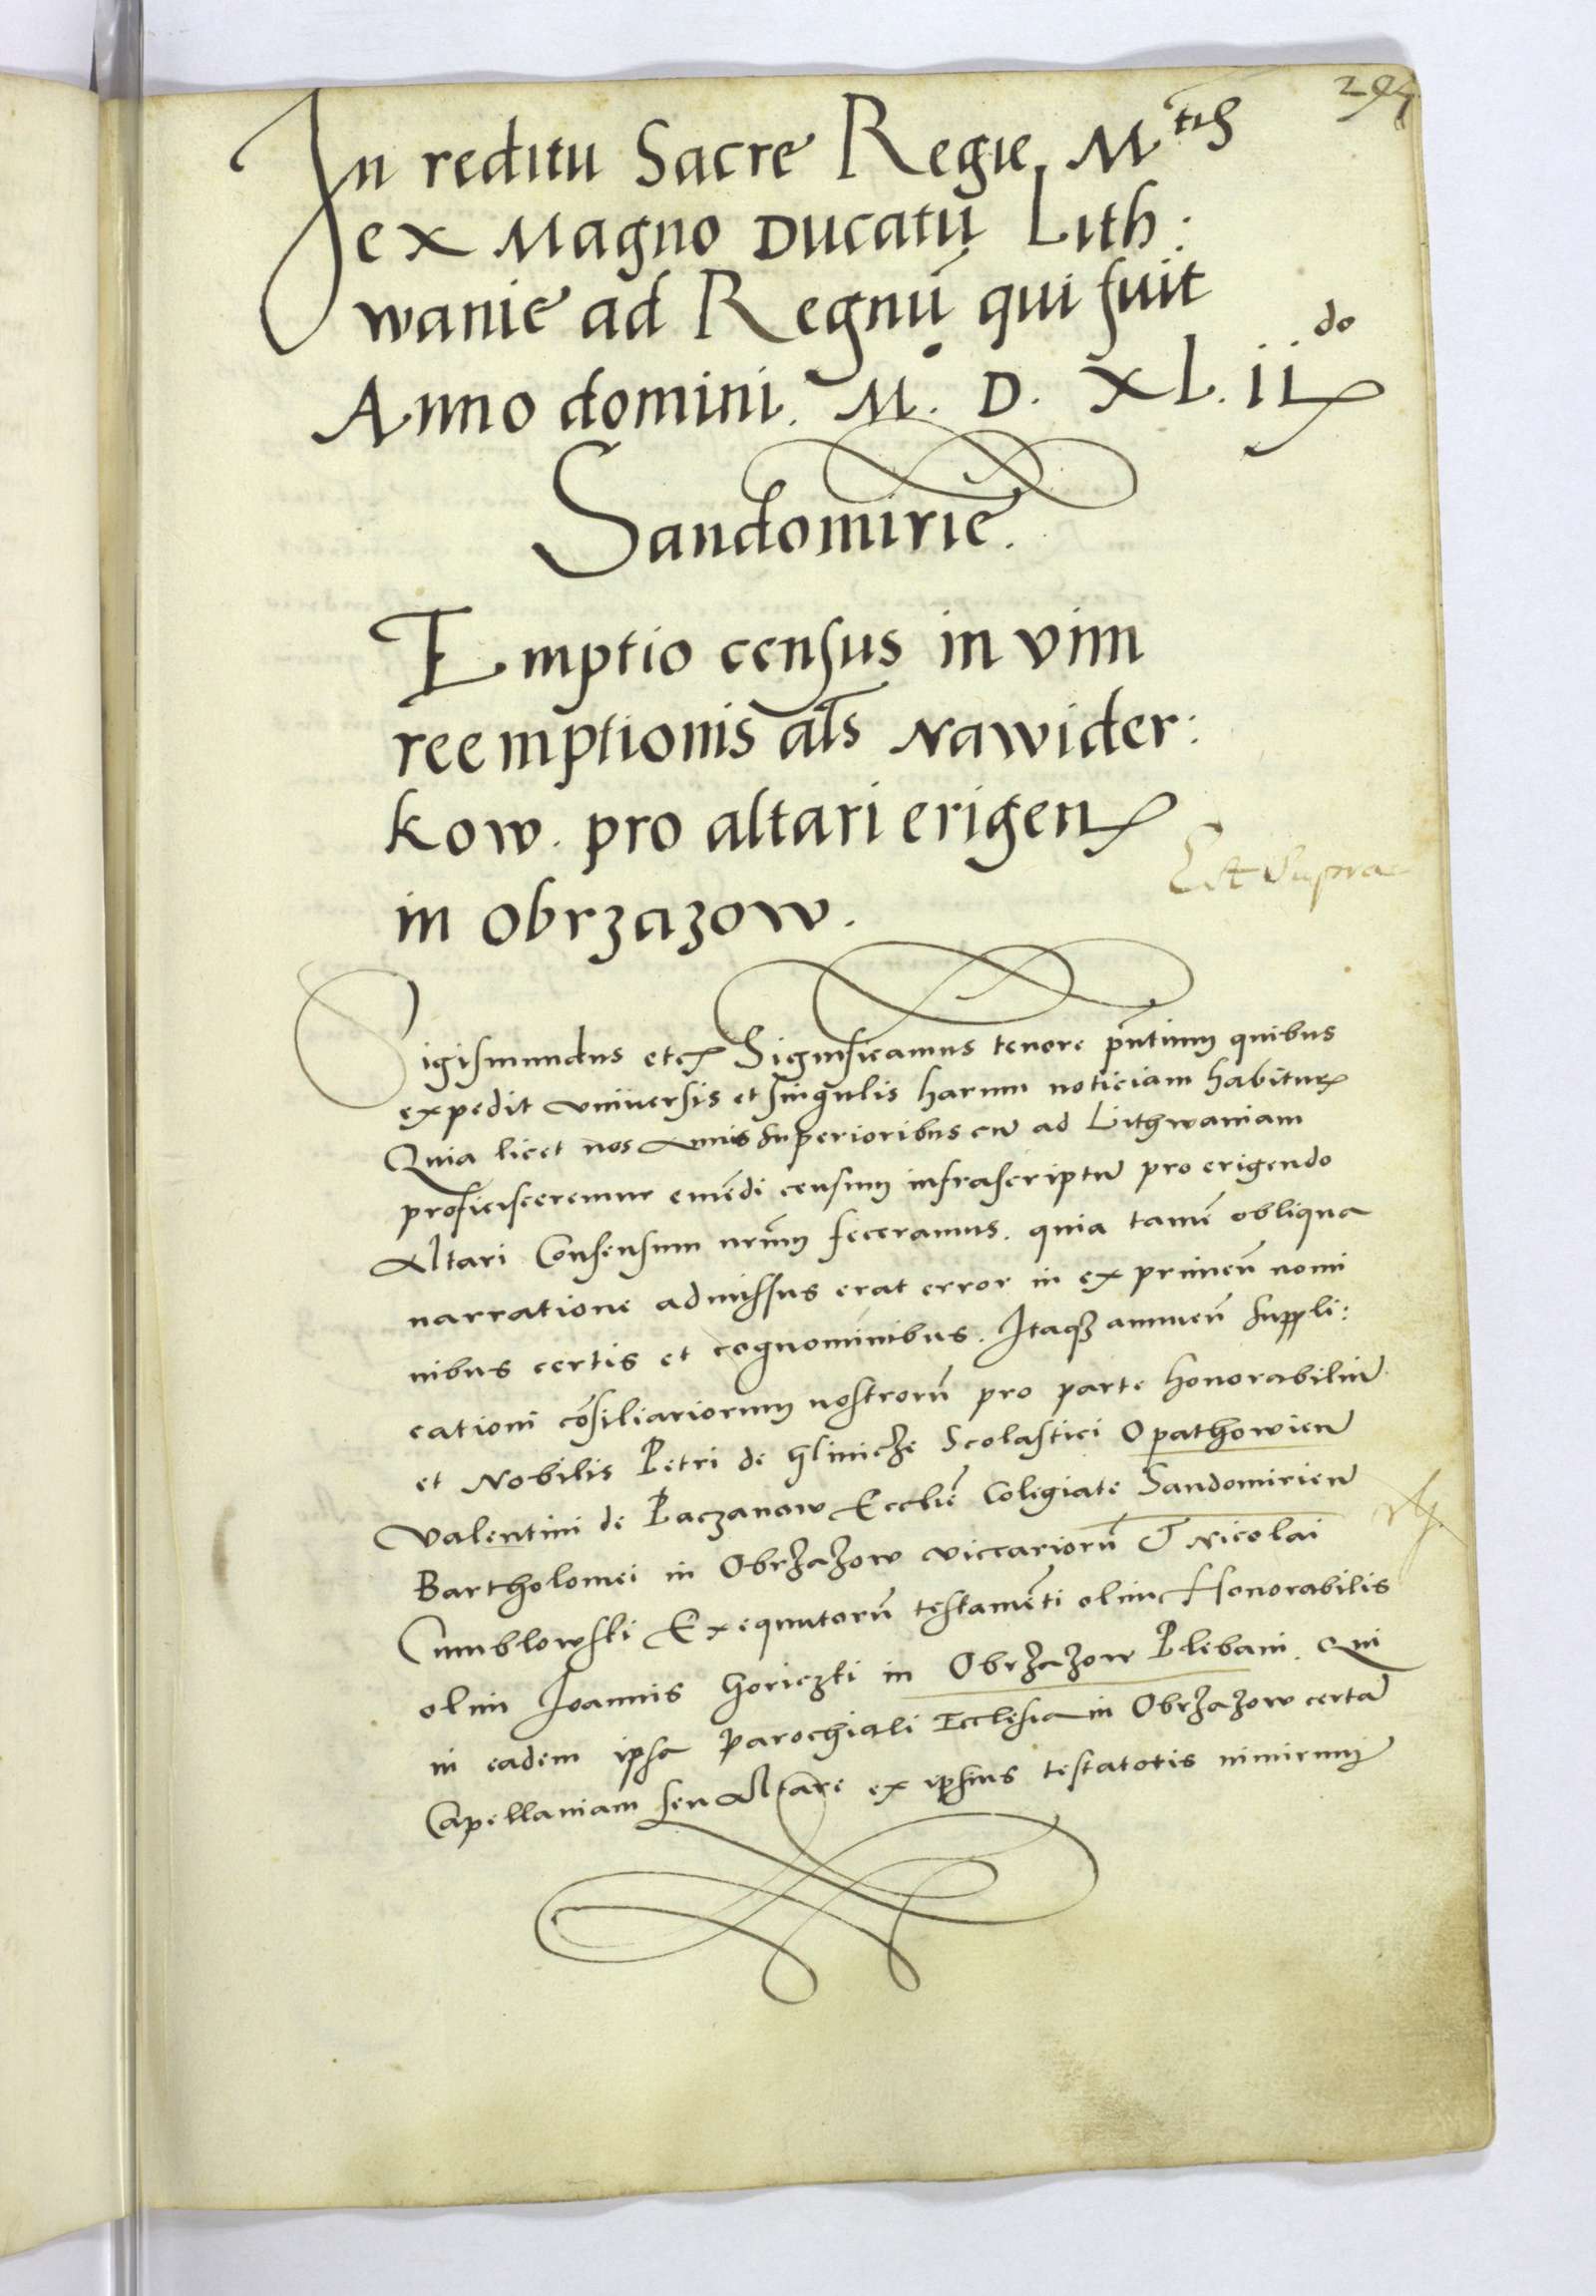 In reditu Sacre Regie M^tis
ex Magno Ducatu Lith:
wanie ad Regnū qui fuit
Anno domini. M. D. XL. ii^do
Sandomirie.
Emptio census in vim
reemptionis als Nawider:
kow. pro altari erigen
in Obrzazow.
Est supra
Sigismundus etc Significamus tenore pñtium quibus
expedit universis et singulis harum noticiam habitur
Quia licet nos Annis superioribus cū ad Lithwaniam
proficisceremur emēdi censum infrascriptū pro erigendo
Altari Consensum nrūm feceramus. quia tamē obliqua
narratione admissus erat error in exprimeñ nomi
nibus certis et cognominibus. Itaqз annueñ suppli:
cationi cōsiliariorum nostrorū pro parte honorabiliū
et Nobilis Petri de Glinicze Scolastici Opathowieñ
Valentini de Paczanow Ecclie Colegiate Sandomirieñ
Bartholomei in Obrzazow viccariorū & Nicolai
Cumblowski Exequutorū testamēti olim Honorabilis
olim Joannis Goriczki in Obrzazow Plebani. Qui
in eadem ipsa Parochiali Ecclesia in Obrzazow certā
Capellaniam seu Altare ex ipsius testatotis nimirum